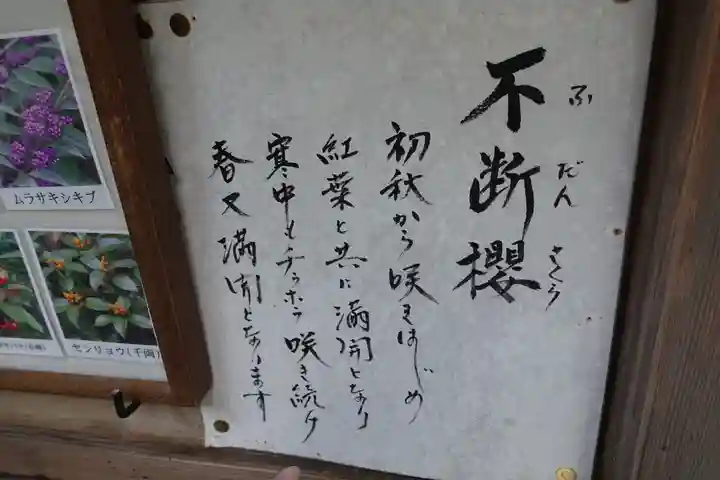 不断櫻
ふだんさくら
初秋から咲きはじめ
紅葉と共に満開となり
寒中もチラホラ咲き続け
春又満開となります
ムラサキシキブ
センリョウ(千両)